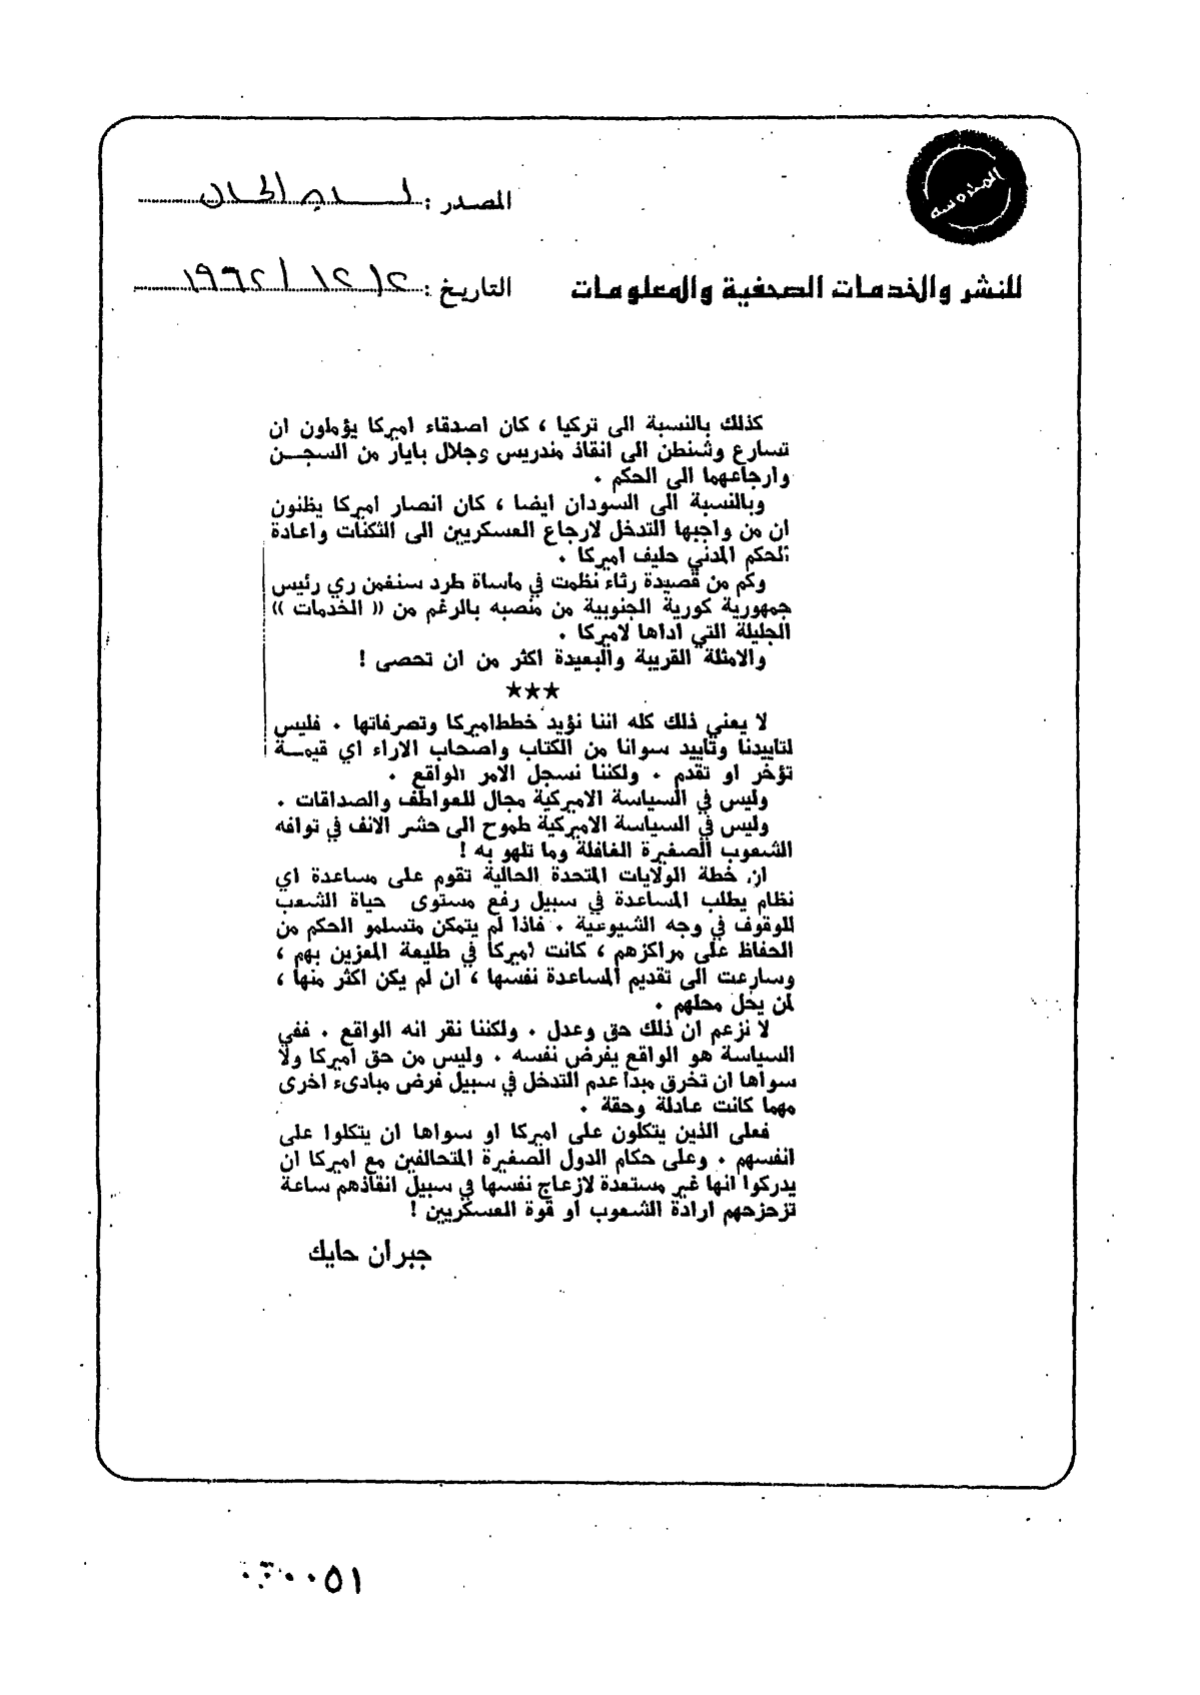 المصدر : لسان الحال
التاريخ : ١٩٦٢/١٢/٢
للنشر والخدمات الصحفية والمعلومات
كذلك بالنسبة الى تركيا ، كان اصدقاء اميركا يؤملون ان
تسارع وشنطن الى انقاذ مندريس وجلال بايار من السجــن
وارجاعهما الى الحكم .
وبالنسبة الى السودان ايضا ، كان انصار اميركا يظنون
ان من واجبها التدخل لارجاع العسكريين الى الثكنات واعادة
الحكم المدني حليف اميركا .
وكم من قصيدة رثاء نظمت في ماساة طرد سنغمن ري رئيس
جمهورية كورية الجنوبية من منصبه بالرغم من (( الخدمات ))
الجليلة التي اداها لاميركا .
والامثلة القريبة والبعيدة اكثر من ان تحصى !
★★★
لا يعني ذلك كله اننا نؤيد خطط اميركا وتصرفاتها . فليس
لتاييدنا وتاييد سوانا من الكتاب واصحاب الاراء اي قيمــة
تؤخر او تقدم . ولكننا نسجل الامر الواقع .
وليس في السياسة الاميركية مجال للعواطف والصداقات .
وليس في السياسة الاميركية طموح الى حشر الانف في توافه
الشعوب الصغيرة الغافلة وما تلهو به !
ان خطة الولايات المتحدة الحالية تقوم على مساعدة اي
نظام يطلب المساعدة في سبيل رفع مستوى حياة الشعب
للوقوف في وجه الشيوعية . فاذا لم يتمكن متسلمو الحكم من
الحفاظ على مراكزهم ، كانت اميركا في طليعة المعزين بهم ،
وسارعت الى تقديم المساعدة نفسها ، ان لم يكن اكثر منها ،
لمن يحل محلهم .
لا نزعم ان ذلك حق وعدل . ولكننا نقر انه الواقع . ففي
السياسة هو الواقع يفرض نفسه . وليس من حق اميركا ولا
سواها ان تخرق مبدا عدم التدخل في سبيل فرض مبادىء اخرى
مهما كانت عادلة وحقة .
فعلى الذين يتكلون على اميركا او سواها ان يتكلوا على
انفسهم . وعلى حكام الدول الصغيرة المتحالفين مع اميركا ان
يدركوا انها غير مستعدة لازعاج نفسها في سبيل انقاذهم ساعة
تزحزحهم ارادة الشعوب او قوة العسكريين !
جبران حايك